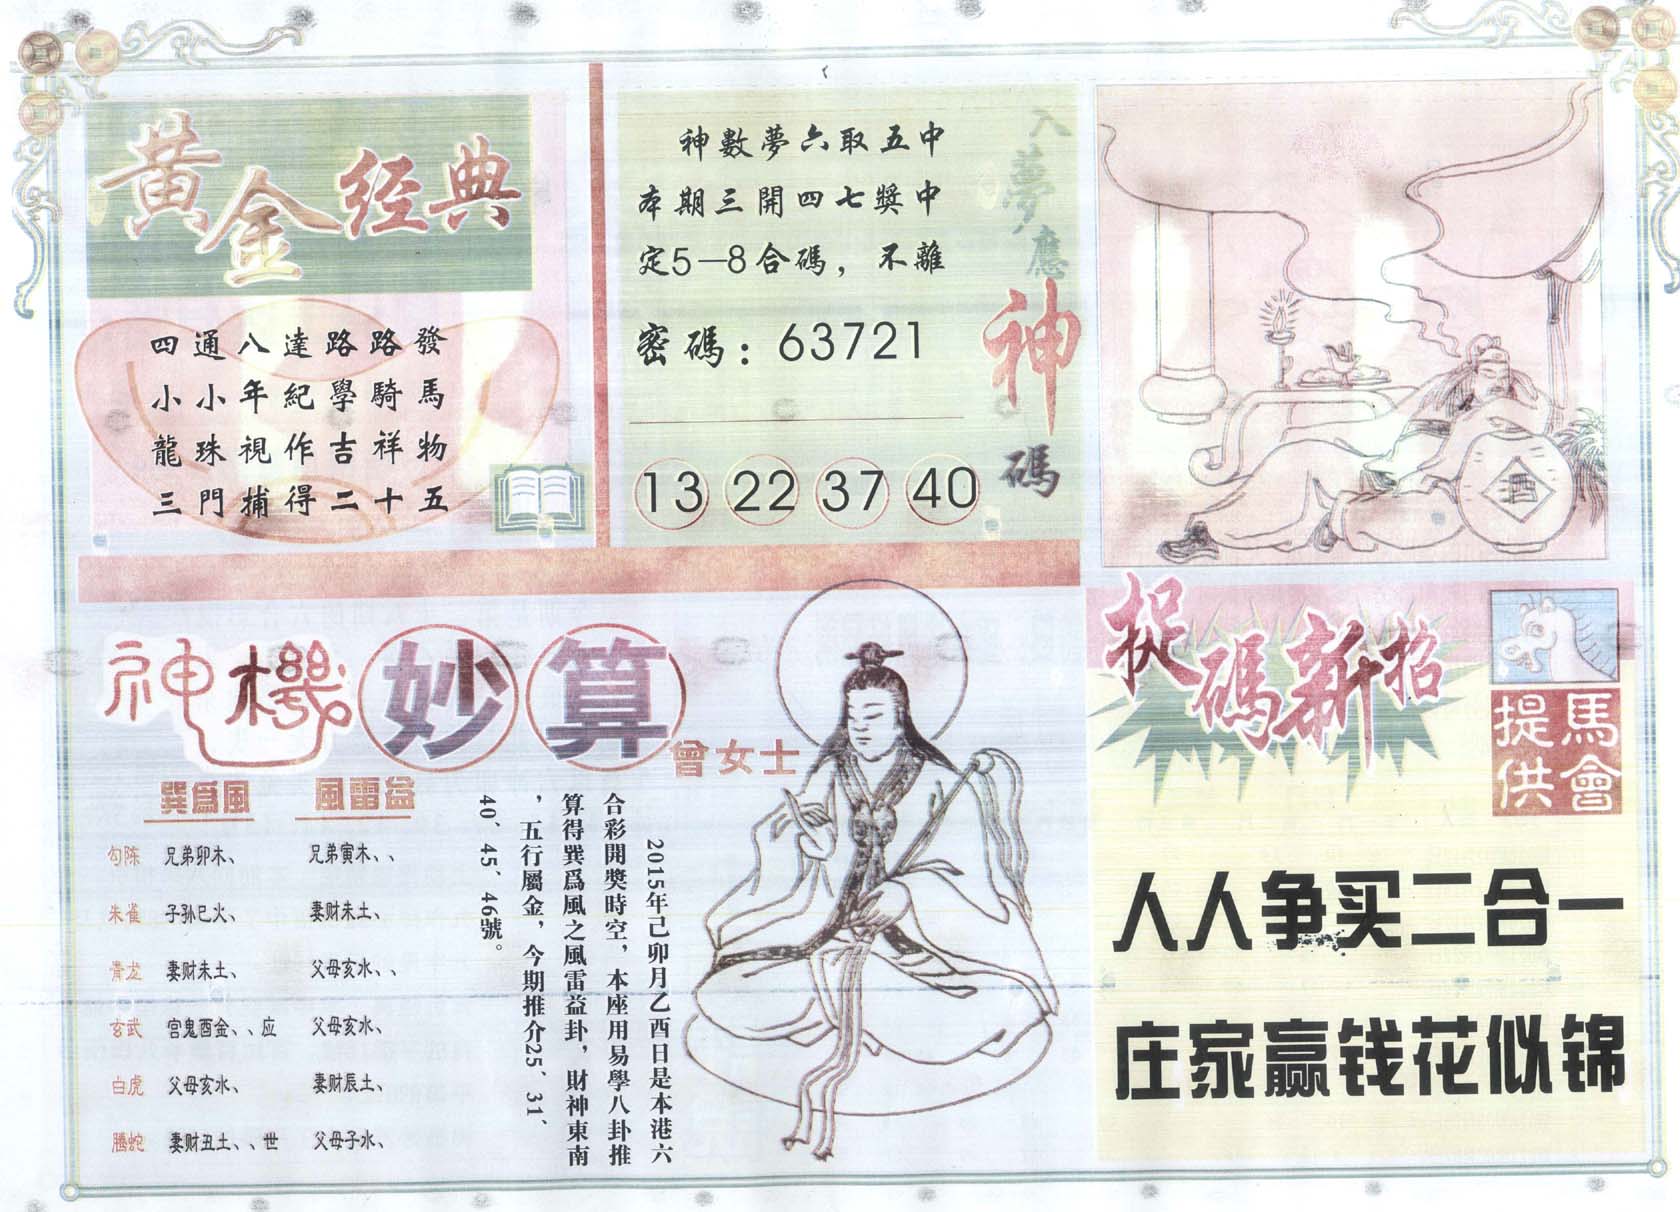 黄金经典
四通八達路路發
小小年紀學騎馬
龍珠視作吉祥物
三門捕得二十五
入夢應神碼
神數夢六取五中
本期三開四七獎中
定5—8合碼，不離
密碼：63721
13 22 37 40
酒
神機妙算
曾女士
巽爲風 風雷益
勾陈 兄弟卯木、 兄弟寅木、、
朱雀 子孙巳火、 妻财未土、
青龙 妻财未土、 父母亥水、、
玄武 宫鬼酉金、、应 父母亥水、
白虎 父母亥水、 妻财辰土、
腾蛇 妻财丑土、、世 父母子水、
2015年己卯月乙酉日是本港六
合彩開獎時空，本座用易學八卦推
算得巽爲風之風雷益卦，財神東南
，五行屬金，今期推介25、31、
40、45、46號。
捉碼新招
馬會
提供
人人争买二合一
庄家赢钱花似锦